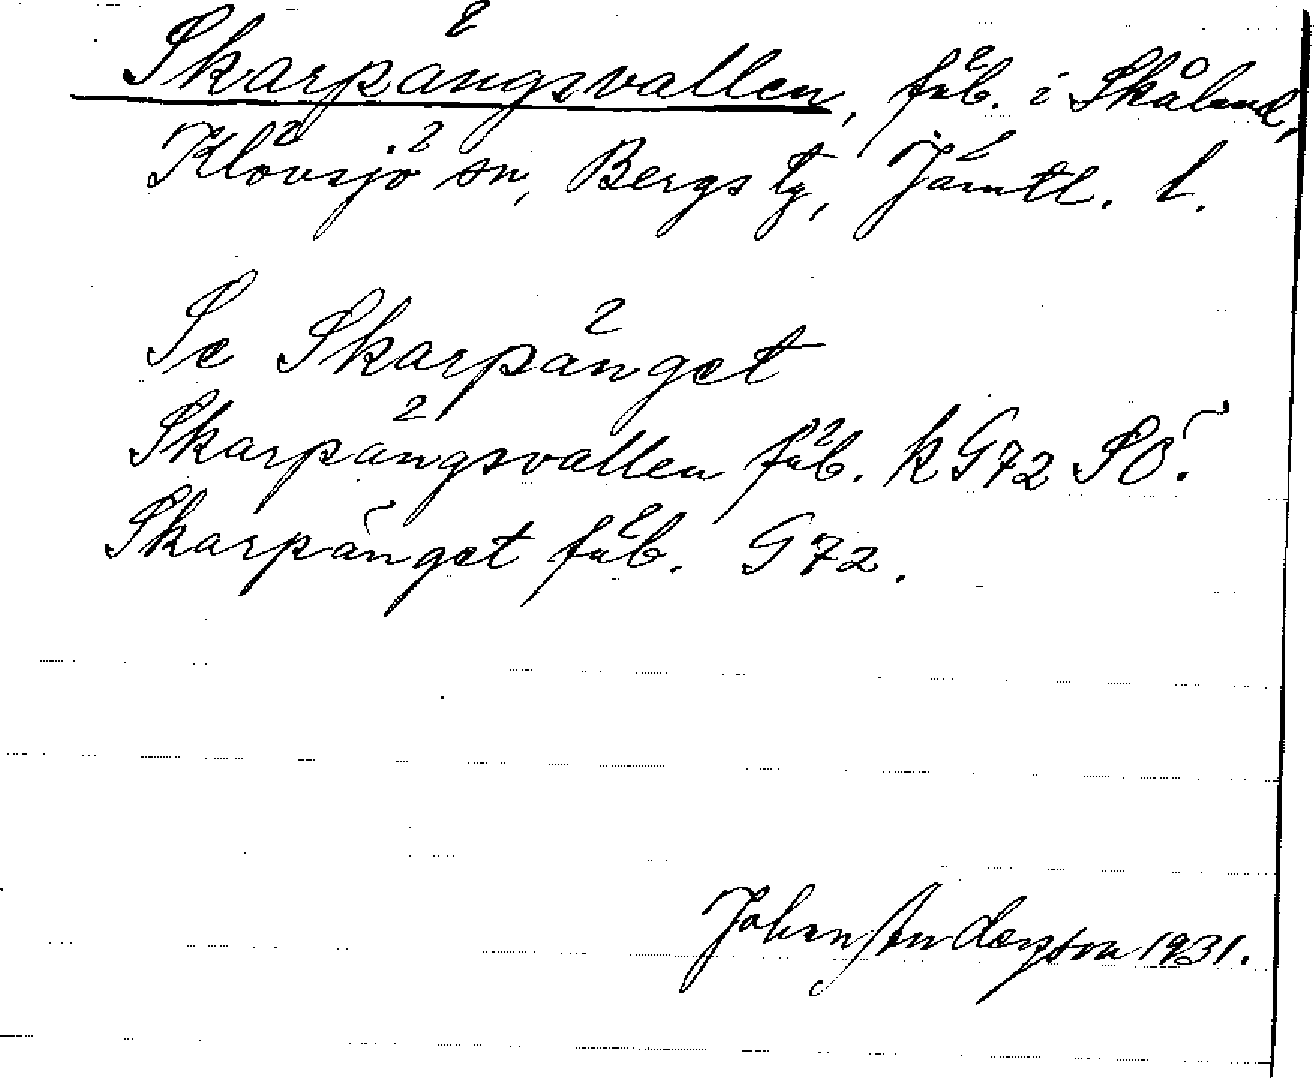 Skarpängsvallen, fäb. i Skåland,
Klövsjö sn, Bergs tg, Jämtl. l.
Se Skarpänget
Skarpängsvallen fäb. k G72 SÖ.
Skarpänget fäb. G72.
Johan Andersson 1931.